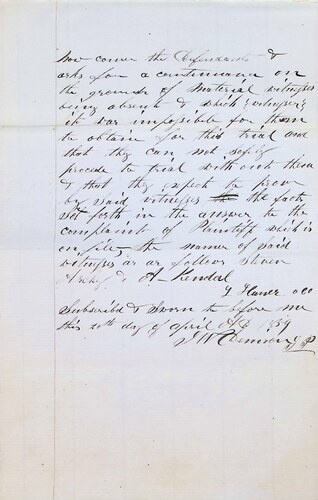 Now comes the Defendants &
asks for a continuance on
the grounds of material witnesses
being absent & which witnesses
it was impossible for them
to obtain for this trial and
that they can not safely
procede to trial without them
& that they expect to prove
by said witnesses the facts
set forth in the answer to the
complaint of Plaintiff which is
on file, the names of said
witnesses are as follows
& A Kendal
Subscribd & Sworn to before me
this 20th day of April 1859